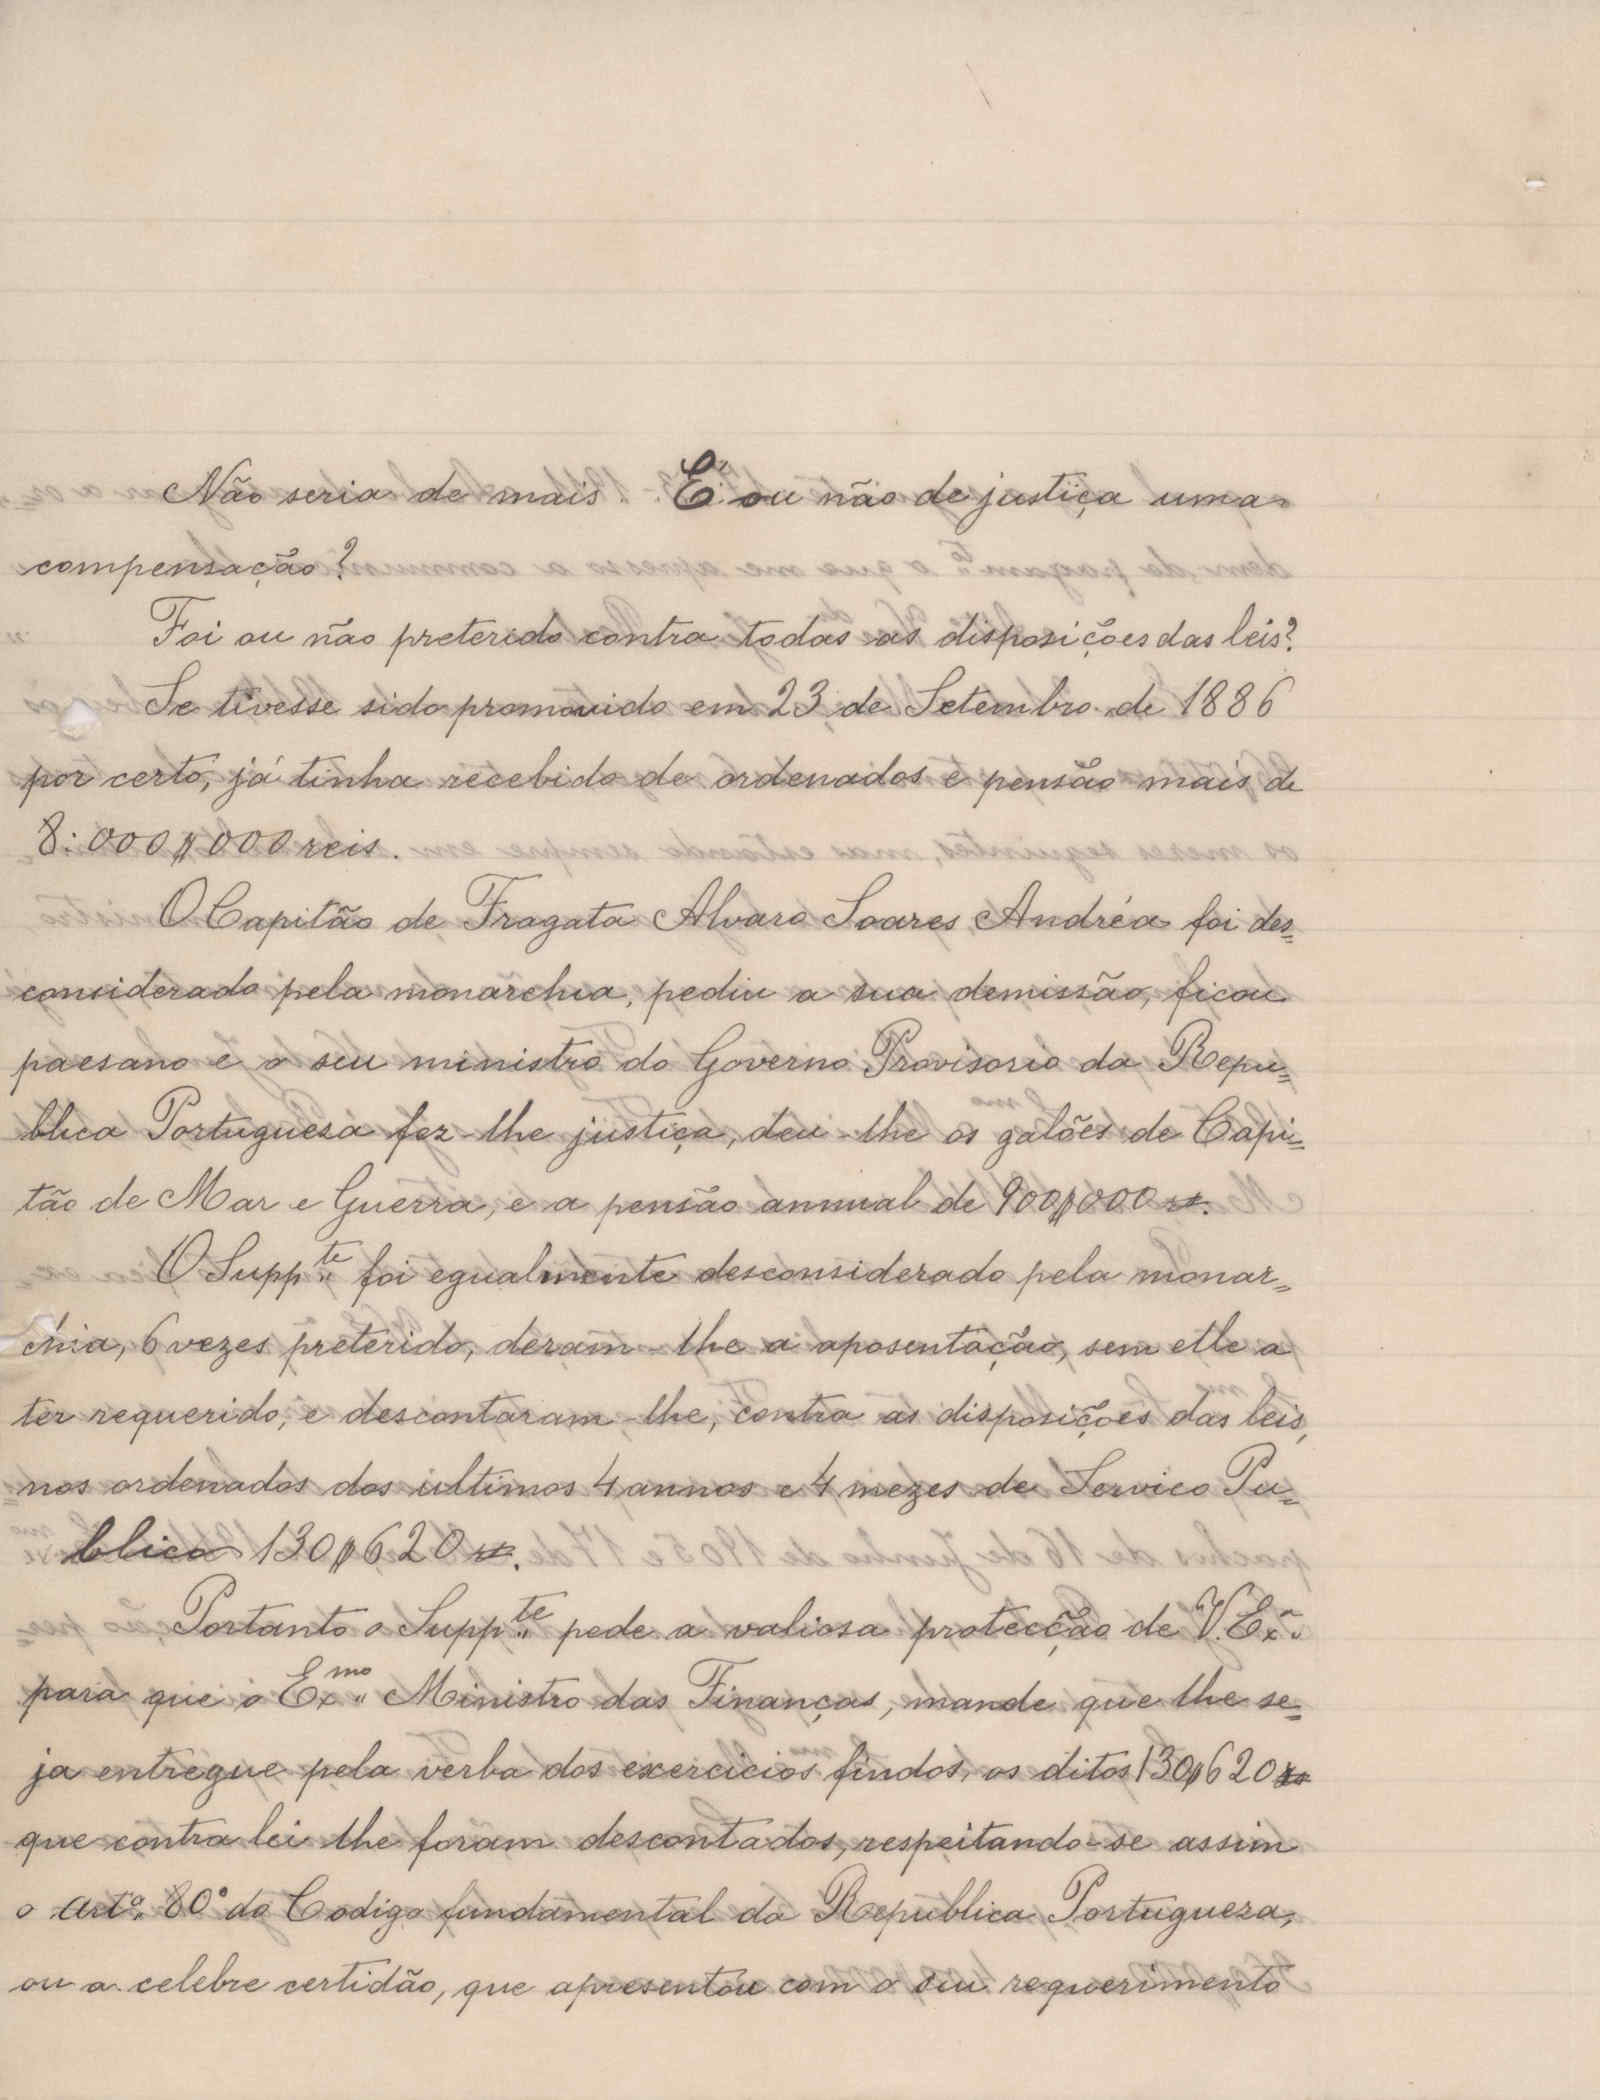 Não seria de mais. É ou não de justiça uma
compensação?
Foi ou não preterido contra todas as disposições das leis?
Se tivesse sido promovido em 23 de Setembro de 1886
por certo, já tinha recebido de ordenados e pensão mais de
8:000$000 reis.
O Capitão de Fragata Alvaro Soares Andréa foi des=
considerado pela monarchia, pediu a sua demissão, ficou
paesano e o seu ministro do Governo Provisorio da Repu=
blica Portuguesa fez-lhe justiça, deu-lhe os galões de Capi=
tão de Mar e Guerra, e a pensão annual de 900$000 rs.
O Supp.te foi egualmente desconsiderado pela monar=
chia, 6 vezes preterido, deram-lhe a aposentação, sem elle a
ter requerido, e descontaram-lhe, contra as disposições das leis,
nos ordenados dos ultimos 4 annos e 4 mezes de Servico Pu=
blico 130$620 rs.
Portanto o Supp.te pede a valiosa protecção de V. Ex.ª
para que o Ex.mo Ministro das Finanças, mande que lhe se=
ja entregue pela verba dos exercicios findos, os ditos 130$620 rs
que contra lei lhe foram descontados, respeitando-se assim
o art.º 80º do Codigo fundamental da Republica Portugueza,
ou a celebre certidão, que apresentou com o seu requerimento